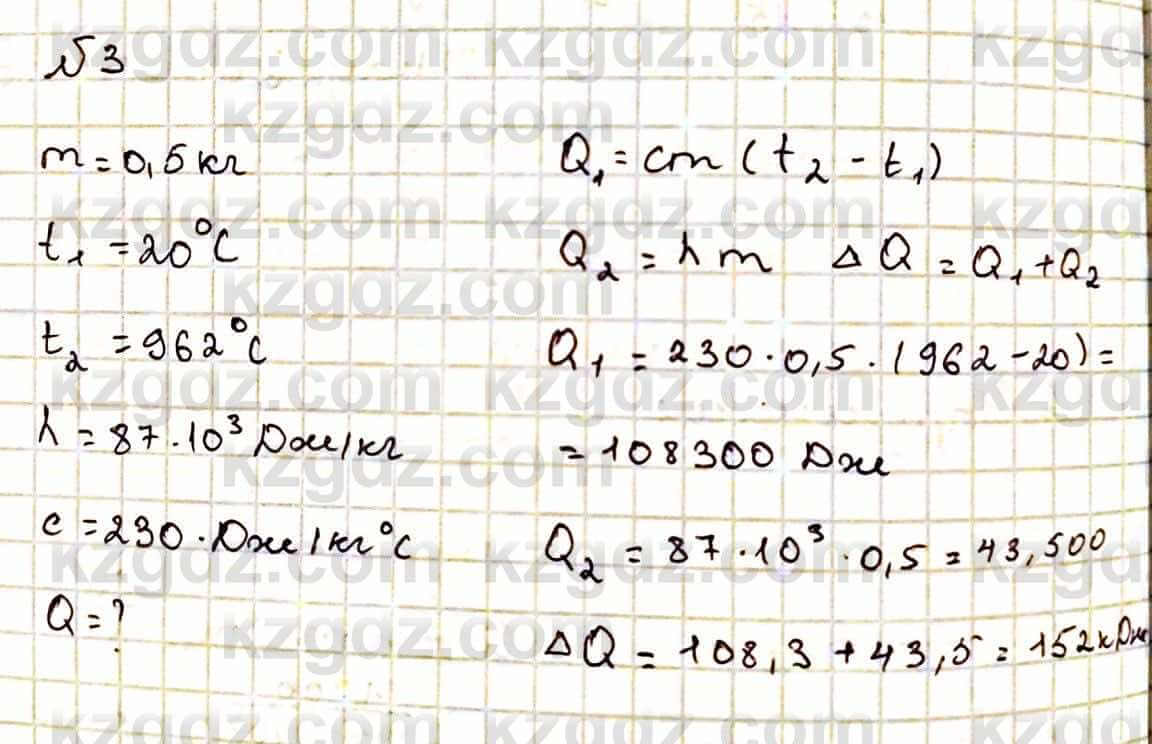 №3
m = 0,5 кг
t₁ = 20°C
t₂ = 962°C
λ = 87·10³ Дж/кг
c = 230·Дж/кг°C
Q = ?
Q₁ = cm (t₂ - t₁)
Q₂ = λm ΔQ = Q₁ + Q₂
Q₁ = 230·0,5·(962-20) =
= 108300 Дж
Q₂ = 87·10³·0,5 = 43,500
ΔQ = 108,3 + 43,5 = 152кДж
kzgdz.com